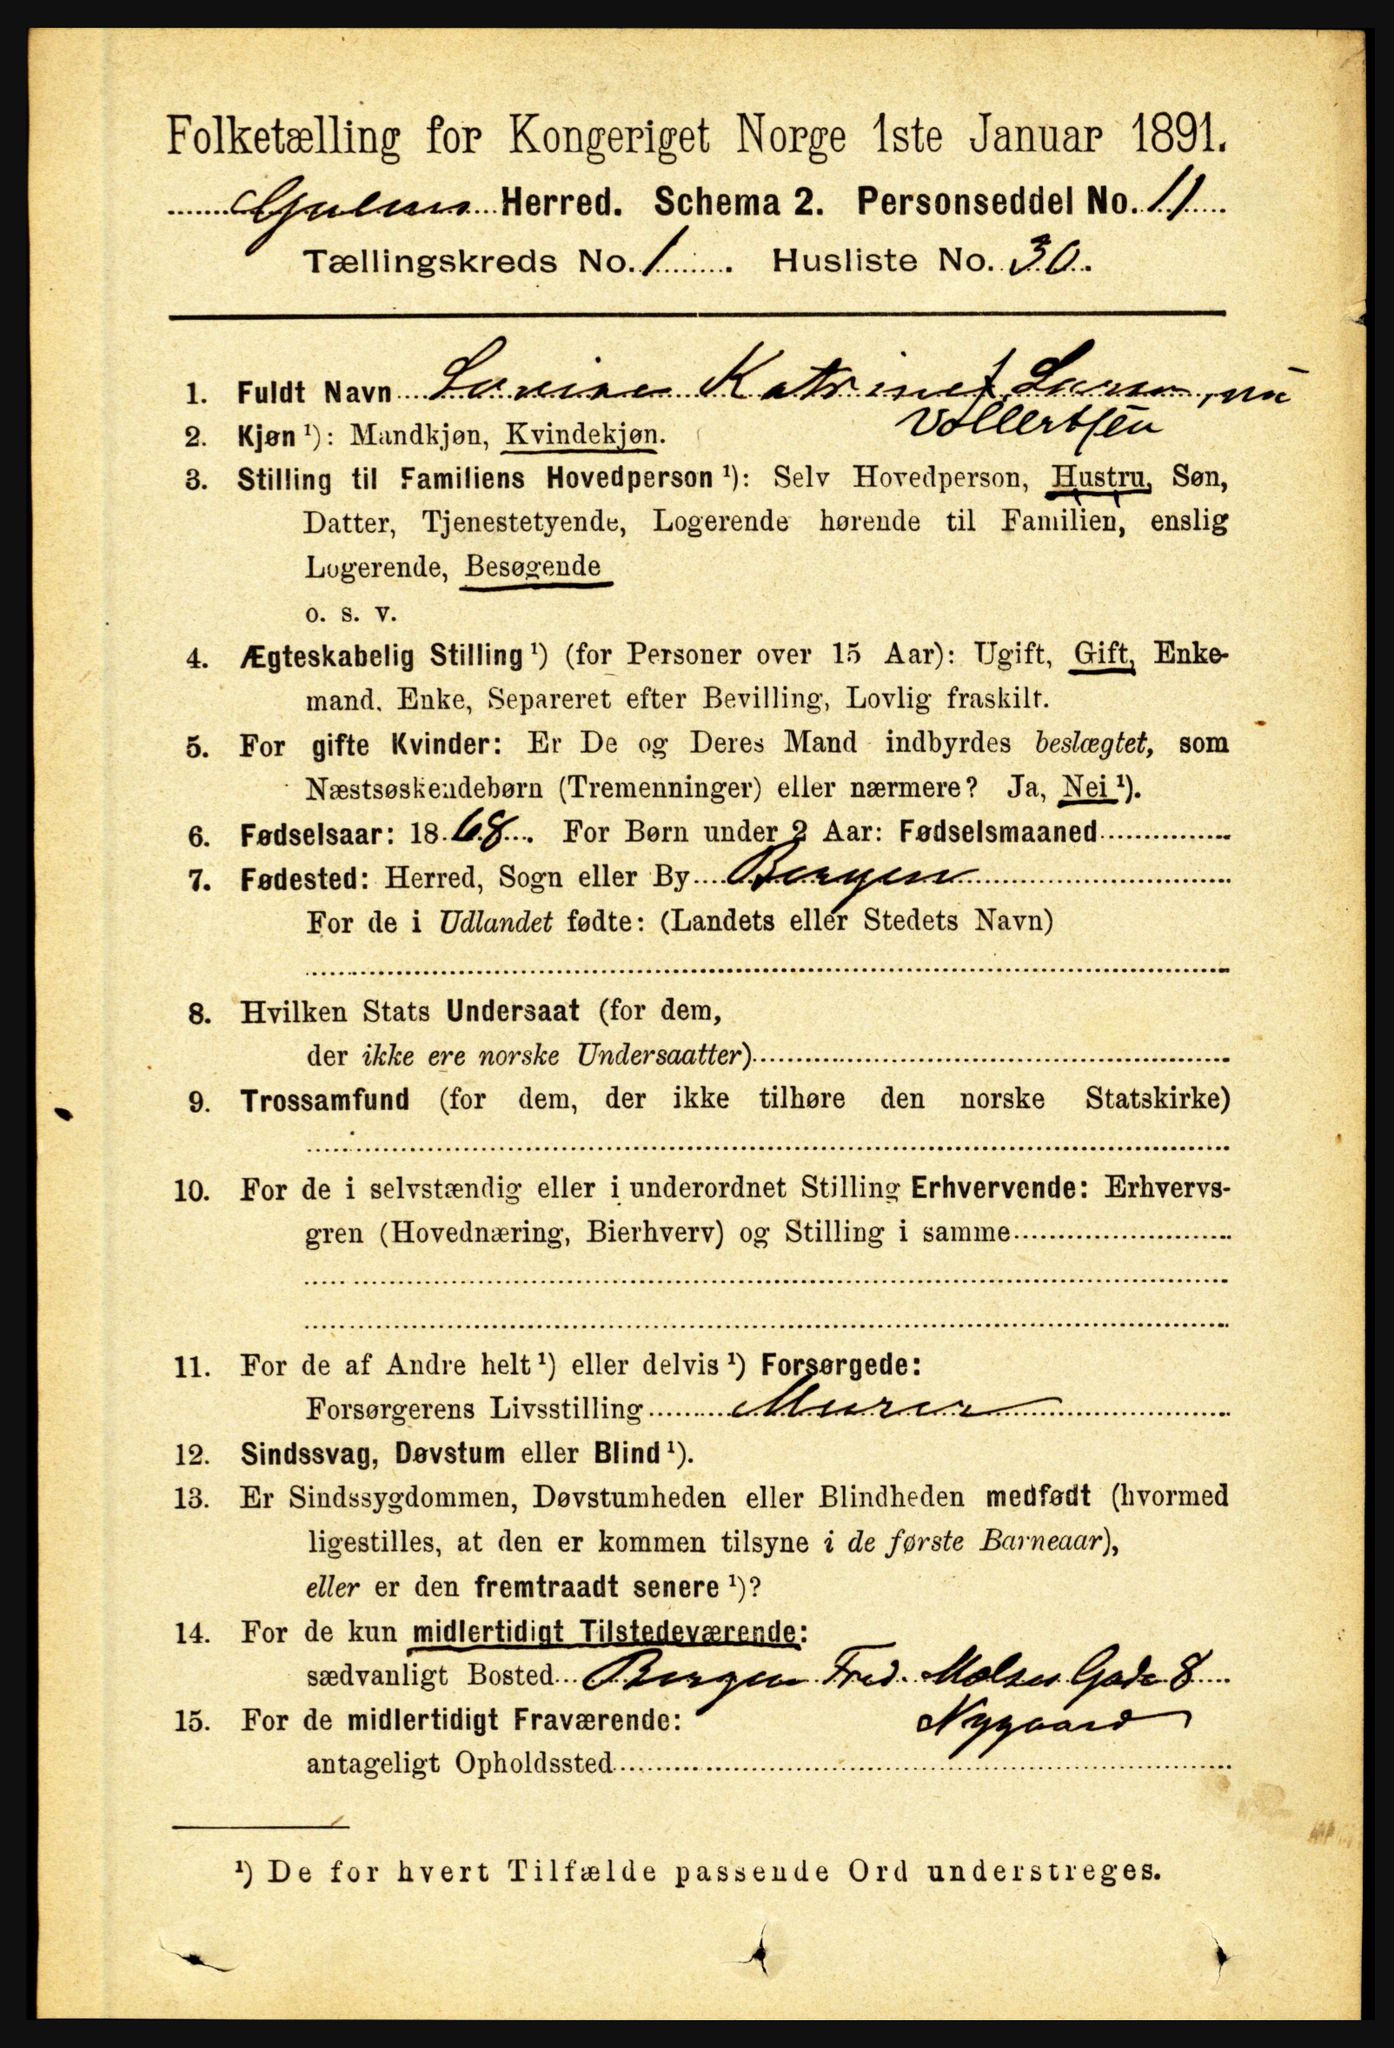 Folketælling for Kongeriget Norge 1ste Januar 1891.
Gulens Herred. Schema 2. Personseddel No. 11
Tællingskreds No. 1. Husliste No. 30.
1. Fuldt Navn Lovise Katrine f. Larsen, nu
Vollertsen
2. Kjøn ¹): Mandkjøn, Kvindekjøn.
3. Stilling til Familiens Hovedperson ¹): Selv Hovedperson, Hustru, Søn,
Datter, Tjenestetyende, Logerende hørende til Familien, enslig
Logerende, Besøgende
o. s. v.
4. Ægteskabelig Stilling ¹) (for Personer over 15 Aar): Ugift, Gift, Enke-
mand, Enke, Separeret efter Bevilling, Lovlig fraskilt.
5. For gifte Kvinder: Er De og Deres Mand indbyrdes beslægtet, som
Næstsøskendebørn (Tremenninger) eller nærmere? Ja, Nei ¹).
6. Fødselsaar: 1868. For Børn under 2 Aar: Fødselsmaaned
7. Fødested: Herred, Sogn eller By Bergen
For de i Udlandet fødte: (Landets eller Stedets Navn)
8. Hvilken Stats Undersaat (for dem,
der ikke ere norske Undersaatter)
9. Trossamfund (for dem, der ikke tilhøre den norske Statskirke)
10. For de i selvstændig eller i underordnet Stilling Erhvervende: Erhvervs-
gren (Hovednæring, Bierhverv) og Stilling i samme
11. For de af Andre helt ¹) eller delvis ¹) Forsørgede:
Forsørgerens Livsstilling Murer
12. Sindssvag, Døvstum eller Blind ¹).
13. Er Sindssygdommen, Døvstumheden eller Blindheden medfødt (hvormed
ligestilles, at den er kommen tilsyne i de første Barneaar),
eller er den fremtraadt senere ¹)?
14. For de kun midlertidigt Tilstedeværende:
sædvanligt Bosted Bergen Fred. Meltzer Gade 8
Nygaard
15. For de midlertidigt Fraværende:
antageligt Opholdssted
¹) De for hvert Tilfælde passende Ord understreges.